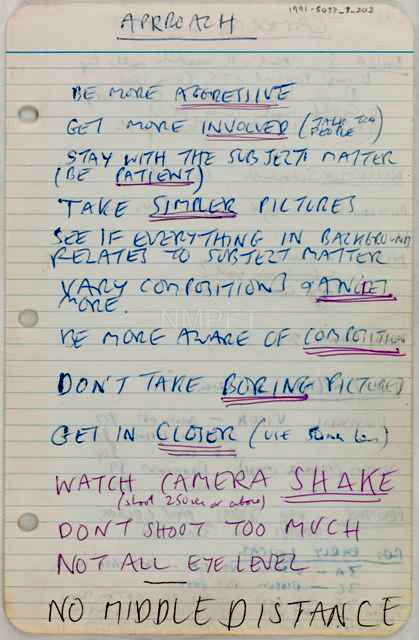 1991-5037_3_202
APPROACH
BE MORE AGGRESSIVE
GET MORE INVOLVED (TALK TO PEOPLE)
STAY WITH THE SUBJECT MATTER
(BE PATIENT)
TAKE SIMPLER PICTURES
SEE IF EVERYTHING IN BACKGROUND
RELATES TO SUBJECT MATTER
VARY COMPOSITIONS & ANGLES
MORE.
NMPFT
BE MORE AWARE OF COMPOSITION
DON'T TAKE BORING PICTURES
GET IN CLOSER (USE 50mm lens)
WATCH CAMERA SHAKE
(shoot 250sec or above)
DON'T SHOOT TOO MUCH
NOT ALL EYE LEVEL
NO MIDDLE DISTANCE